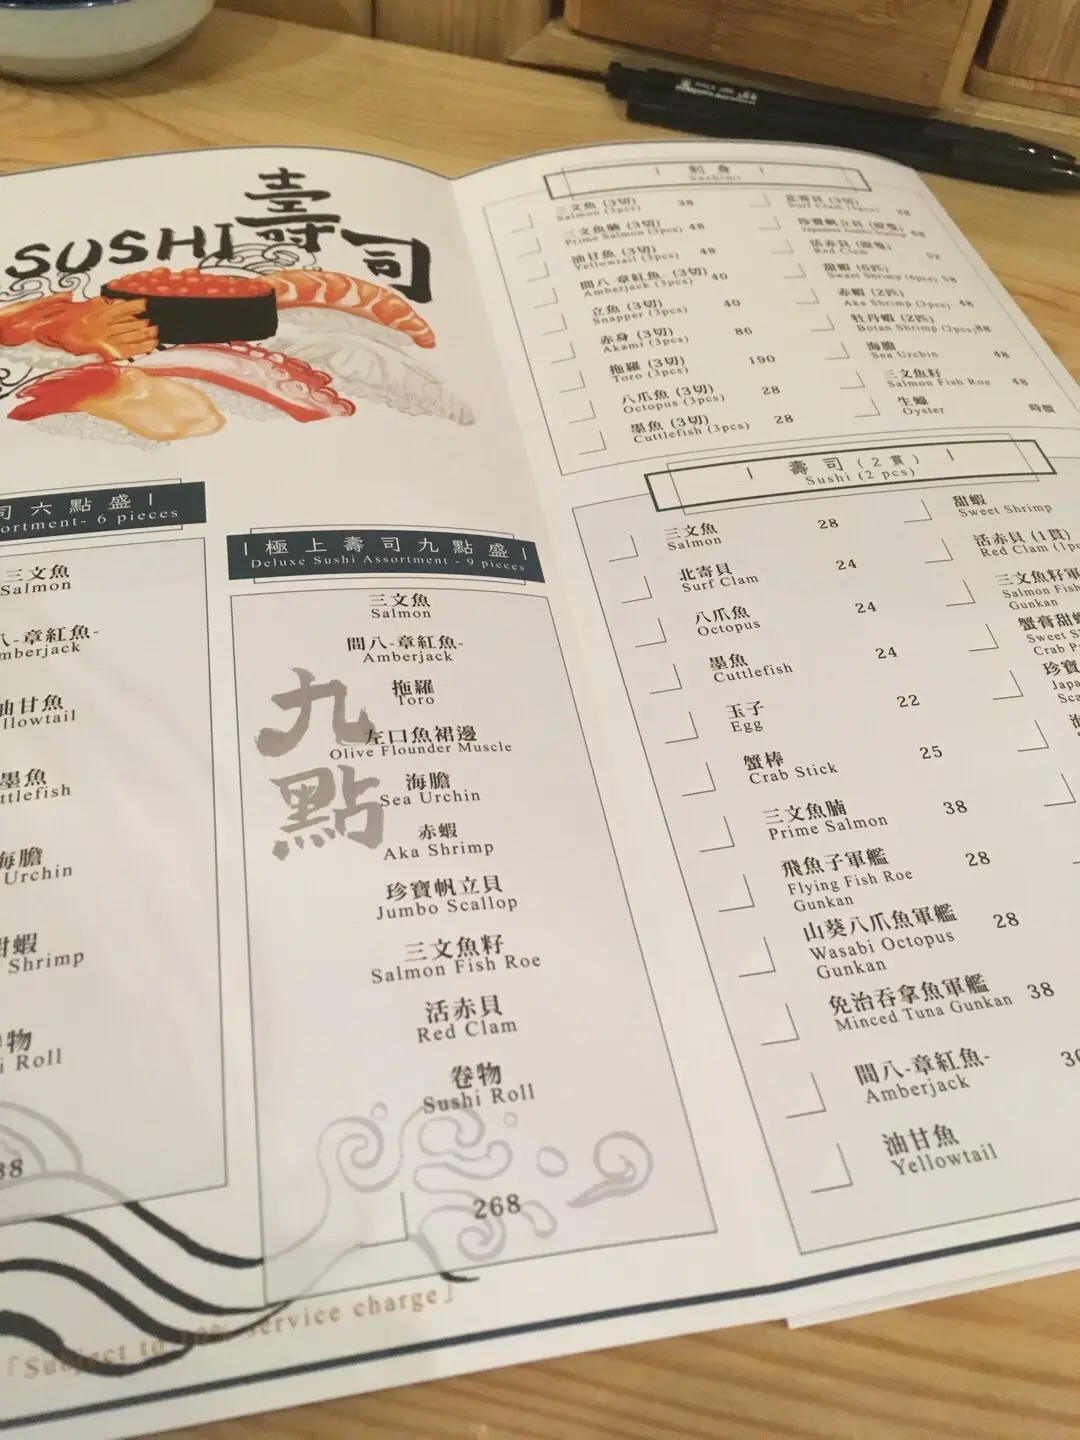 SUSHI 壽司
司六點盛
ortment- 6 pieces
三文魚
Salmon
八-章紅魚-
mberjack
油甘魚
llowtail
墨魚
ttlefish
海膽
Urchin
甜蝦
Shrimp
物
i Roll
88
極上壽司九點盛
Deluxe Sushi Assortment - 9 pieces
九點
三文魚
Salmon
間八-章紅魚-
Amberjack
拖羅
Toro
左口魚裙邊
Olive Flounder Muscle
海膽
Sea Urchin
赤蝦
Aka Shrimp
珍寶帆立貝
Jumbo Scallop
三文魚籽
Salmon Fish Roe
活赤貝
Red Clam
卷物
Sushi Roll
268
「Subject to 10% service charge」
刺身
Sashimi
三文魚 (3切) 38
Salmon (3pcs)
三文魚腩 (3切) 48
Prime Salmon (3pcs)
油甘魚 (3切) 48
Yellowtail (3pcs)
間八-章紅魚- (3切) 40
Amberjack (3pcs)
立魚 (3切) 40
Snapper (3pcs)
赤身 (3切) 86
Akami (3pcs)
拖羅 (3切) 190
Toro (3pcs)
八爪魚 (3切) 28
Octopus (3pcs)
墨魚 (3切) 28
Cuttlefish (3pcs)
北寄貝 (3切)
Surf Clam (3pcs) 28
珍寶帆立貝
Japanese Jumbo Scallop 68
活赤貝
Red Clam 52
甜蝦 (6匹)
Sweet Shrimp (6pcs) 58
赤蝦 (2匹)
Aka Shrimp (3pcs) 48
牡丹蝦 (2匹)
Botan Shrimp (2pcs)
海膽
Sea Urchin 48
三文魚籽
Salmon Fish Roe 48
生蠔
Oyster 時價
壽司(2貫)
Sushi (2 pcs)
三文魚 28
Salmon
北寄貝 24
Surf Clam
八爪魚 24
Octopus
墨魚 24
Cuttlefish
玉子 22
Egg
蟹棒 25
Crab Stick
三文魚腩 38
Prime Salmon
飛魚子軍艦 28
Flying Fish Roe
Gunkan
山葵八爪魚軍艦 28
Wasabi Octopus
Gunkan
免治吞拿魚軍艦 38
Minced Tuna Gunkan
間八-章紅魚-
Amberjack
油甘魚
Yellowtail
甜蝦
Sweet Shrimp
活赤貝 (1貫)
Red Clam (1pc
三文魚籽軍
Salmon Fish
Gunkan
蟹膏甜蝦
Sweet S
Crab P
珍寶
Japa
Sca